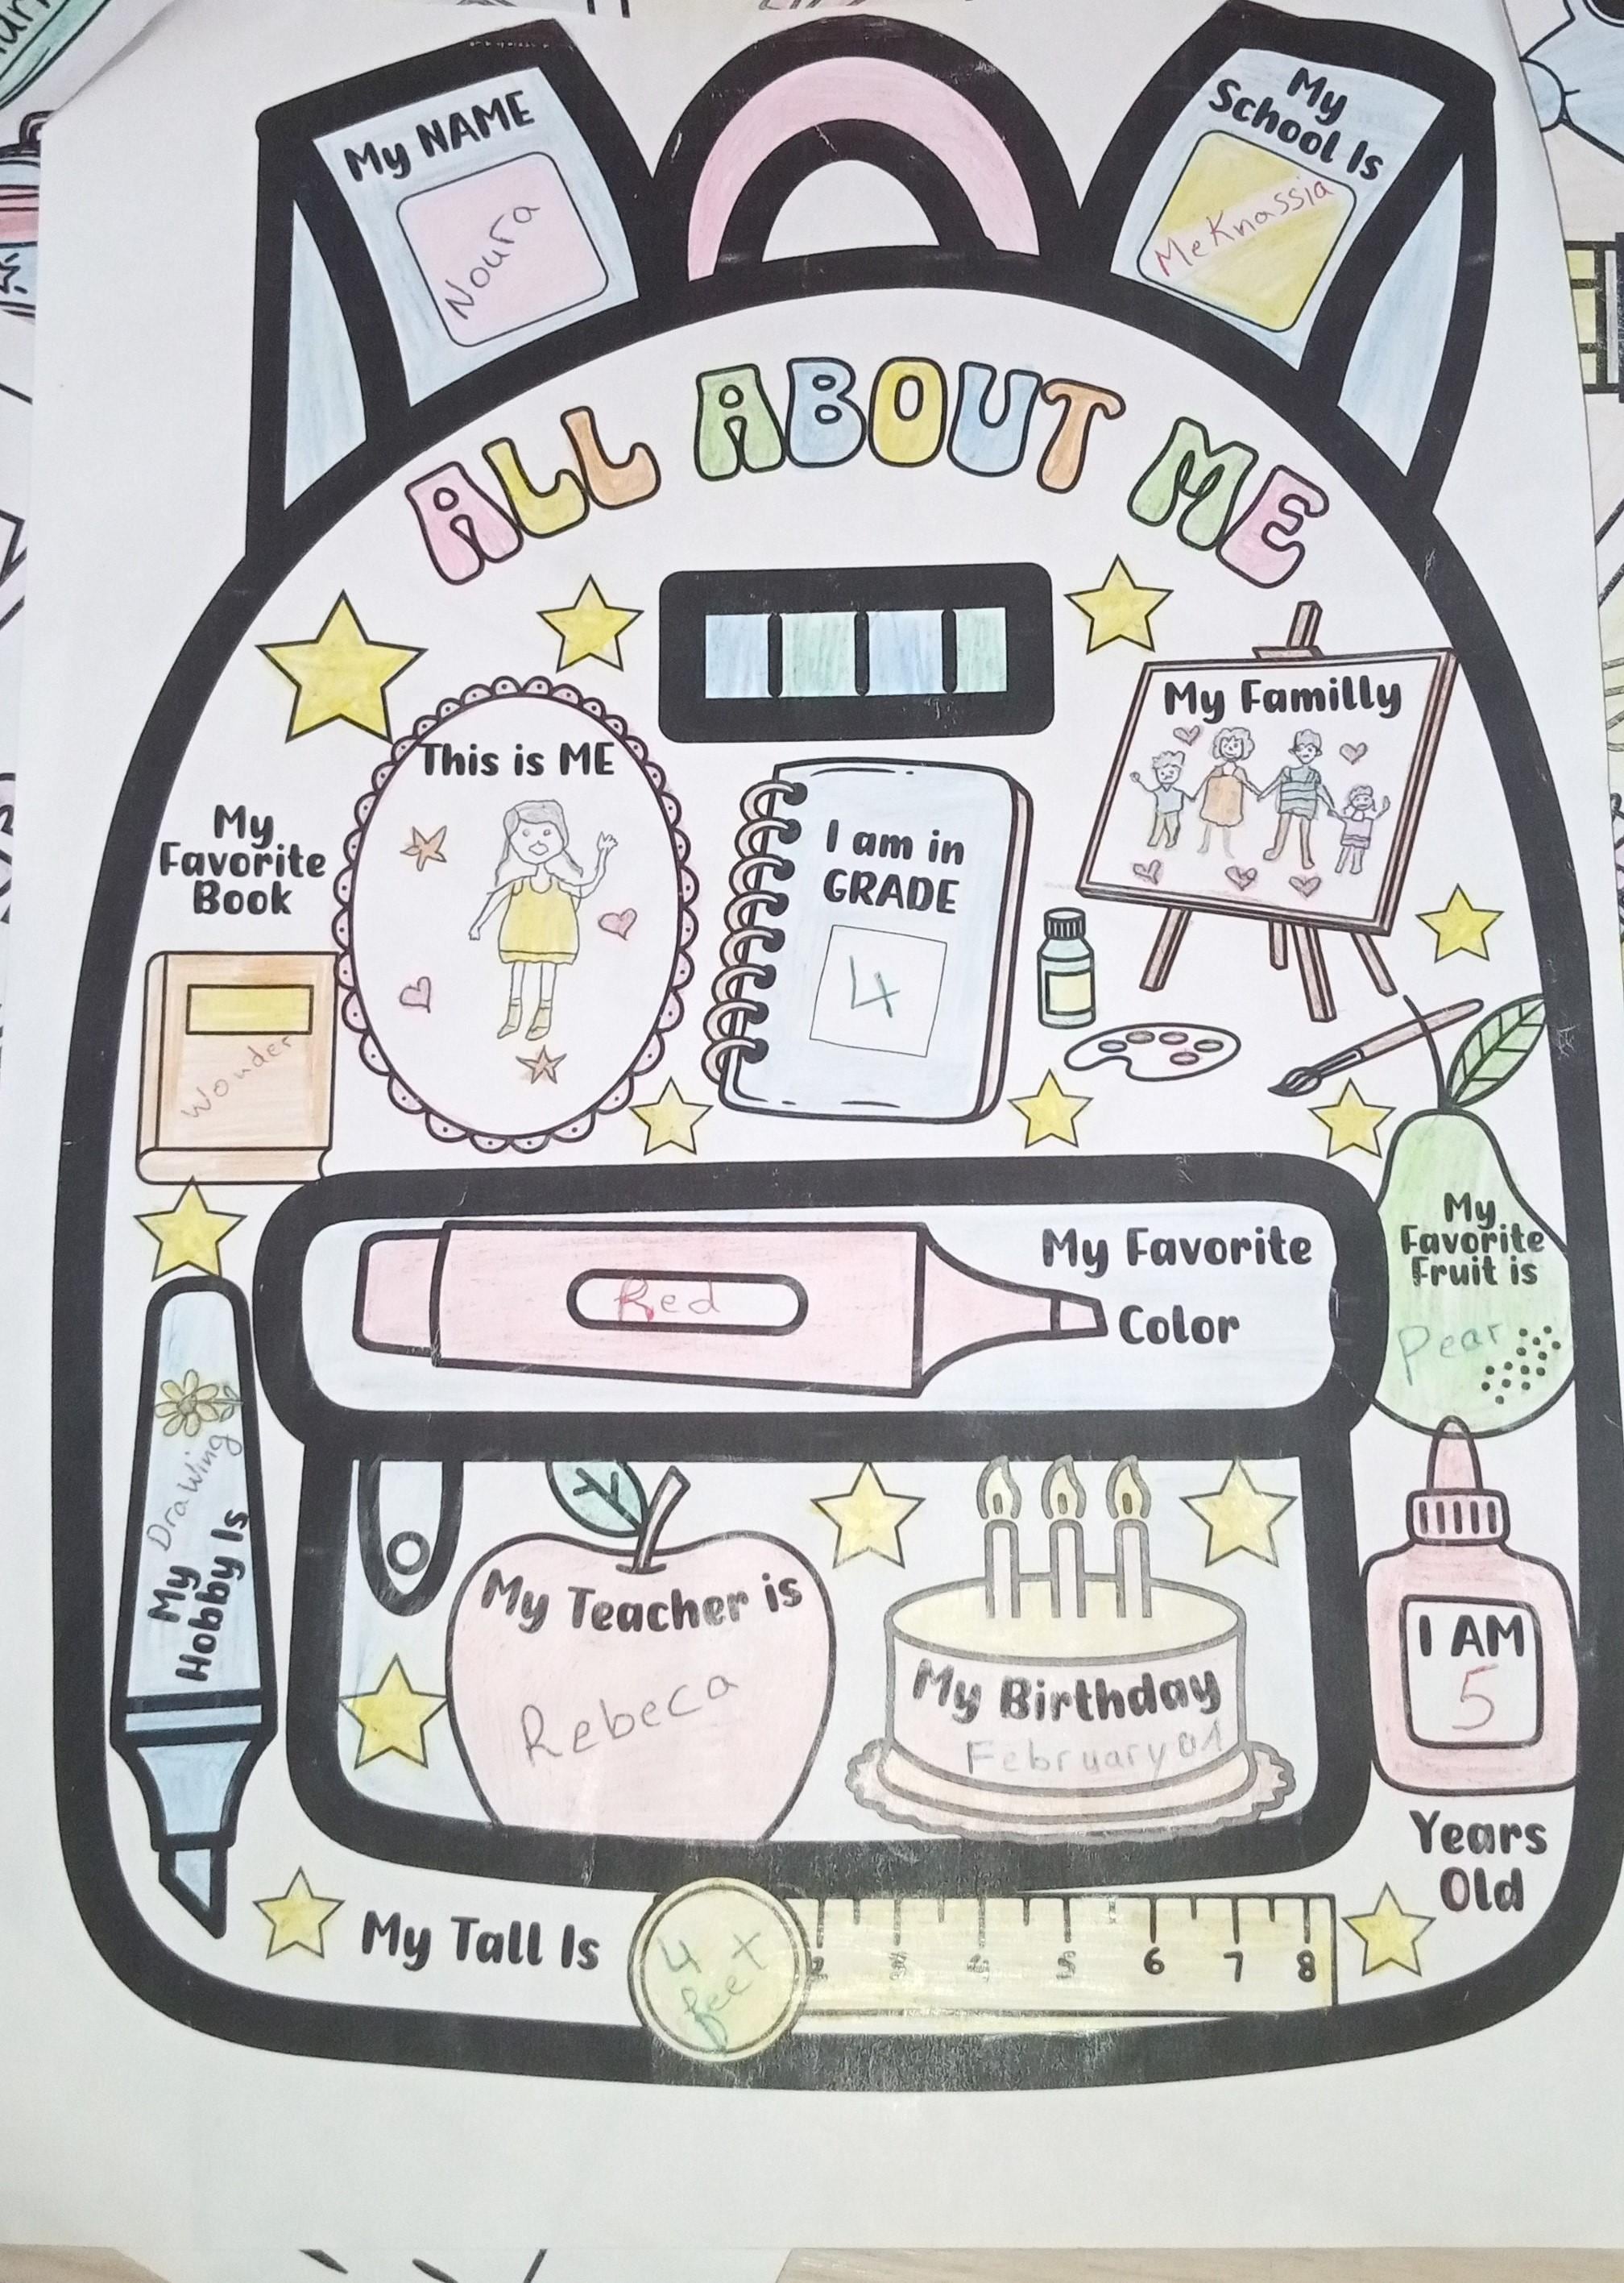 My NAME
Noura
My
School Is
Meknassia
ALL ABOUT ME
This is ME
My Familly
My
Favorite
Book
Wonder
I am in
GRADE
4
My Favorite
Color
Red
My
Favorite
Fruit is
Pear
Drawing
My
Hobby Is
My Teacher is
Rebeca
My Birthday
February 01
I AM
5
Years
Old
My Tall Is
4
feet
2 3 4 5 6 7 8